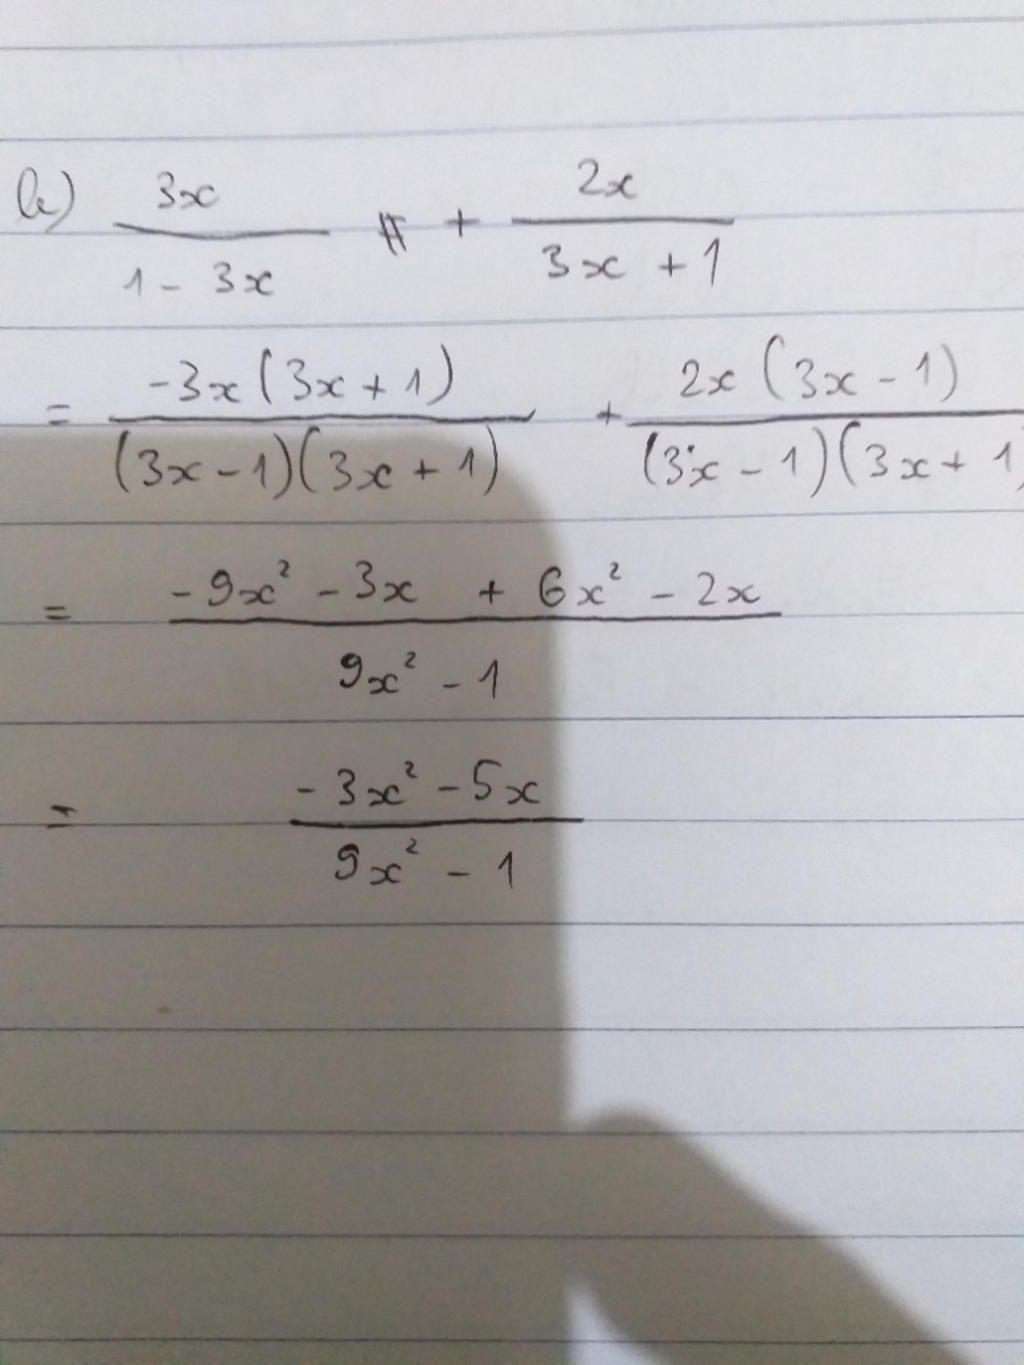 b) 3x / 1 - 3x + 2x / 3x + 1
= -3x(3x + 1) / (3x - 1)(3x + 1) + 2x(3x - 1) / (3x - 1)(3x + 1)
= -9x² - 3x + 6x² - 2x / 9x² - 1
= -3x² - 5x / 9x² - 1